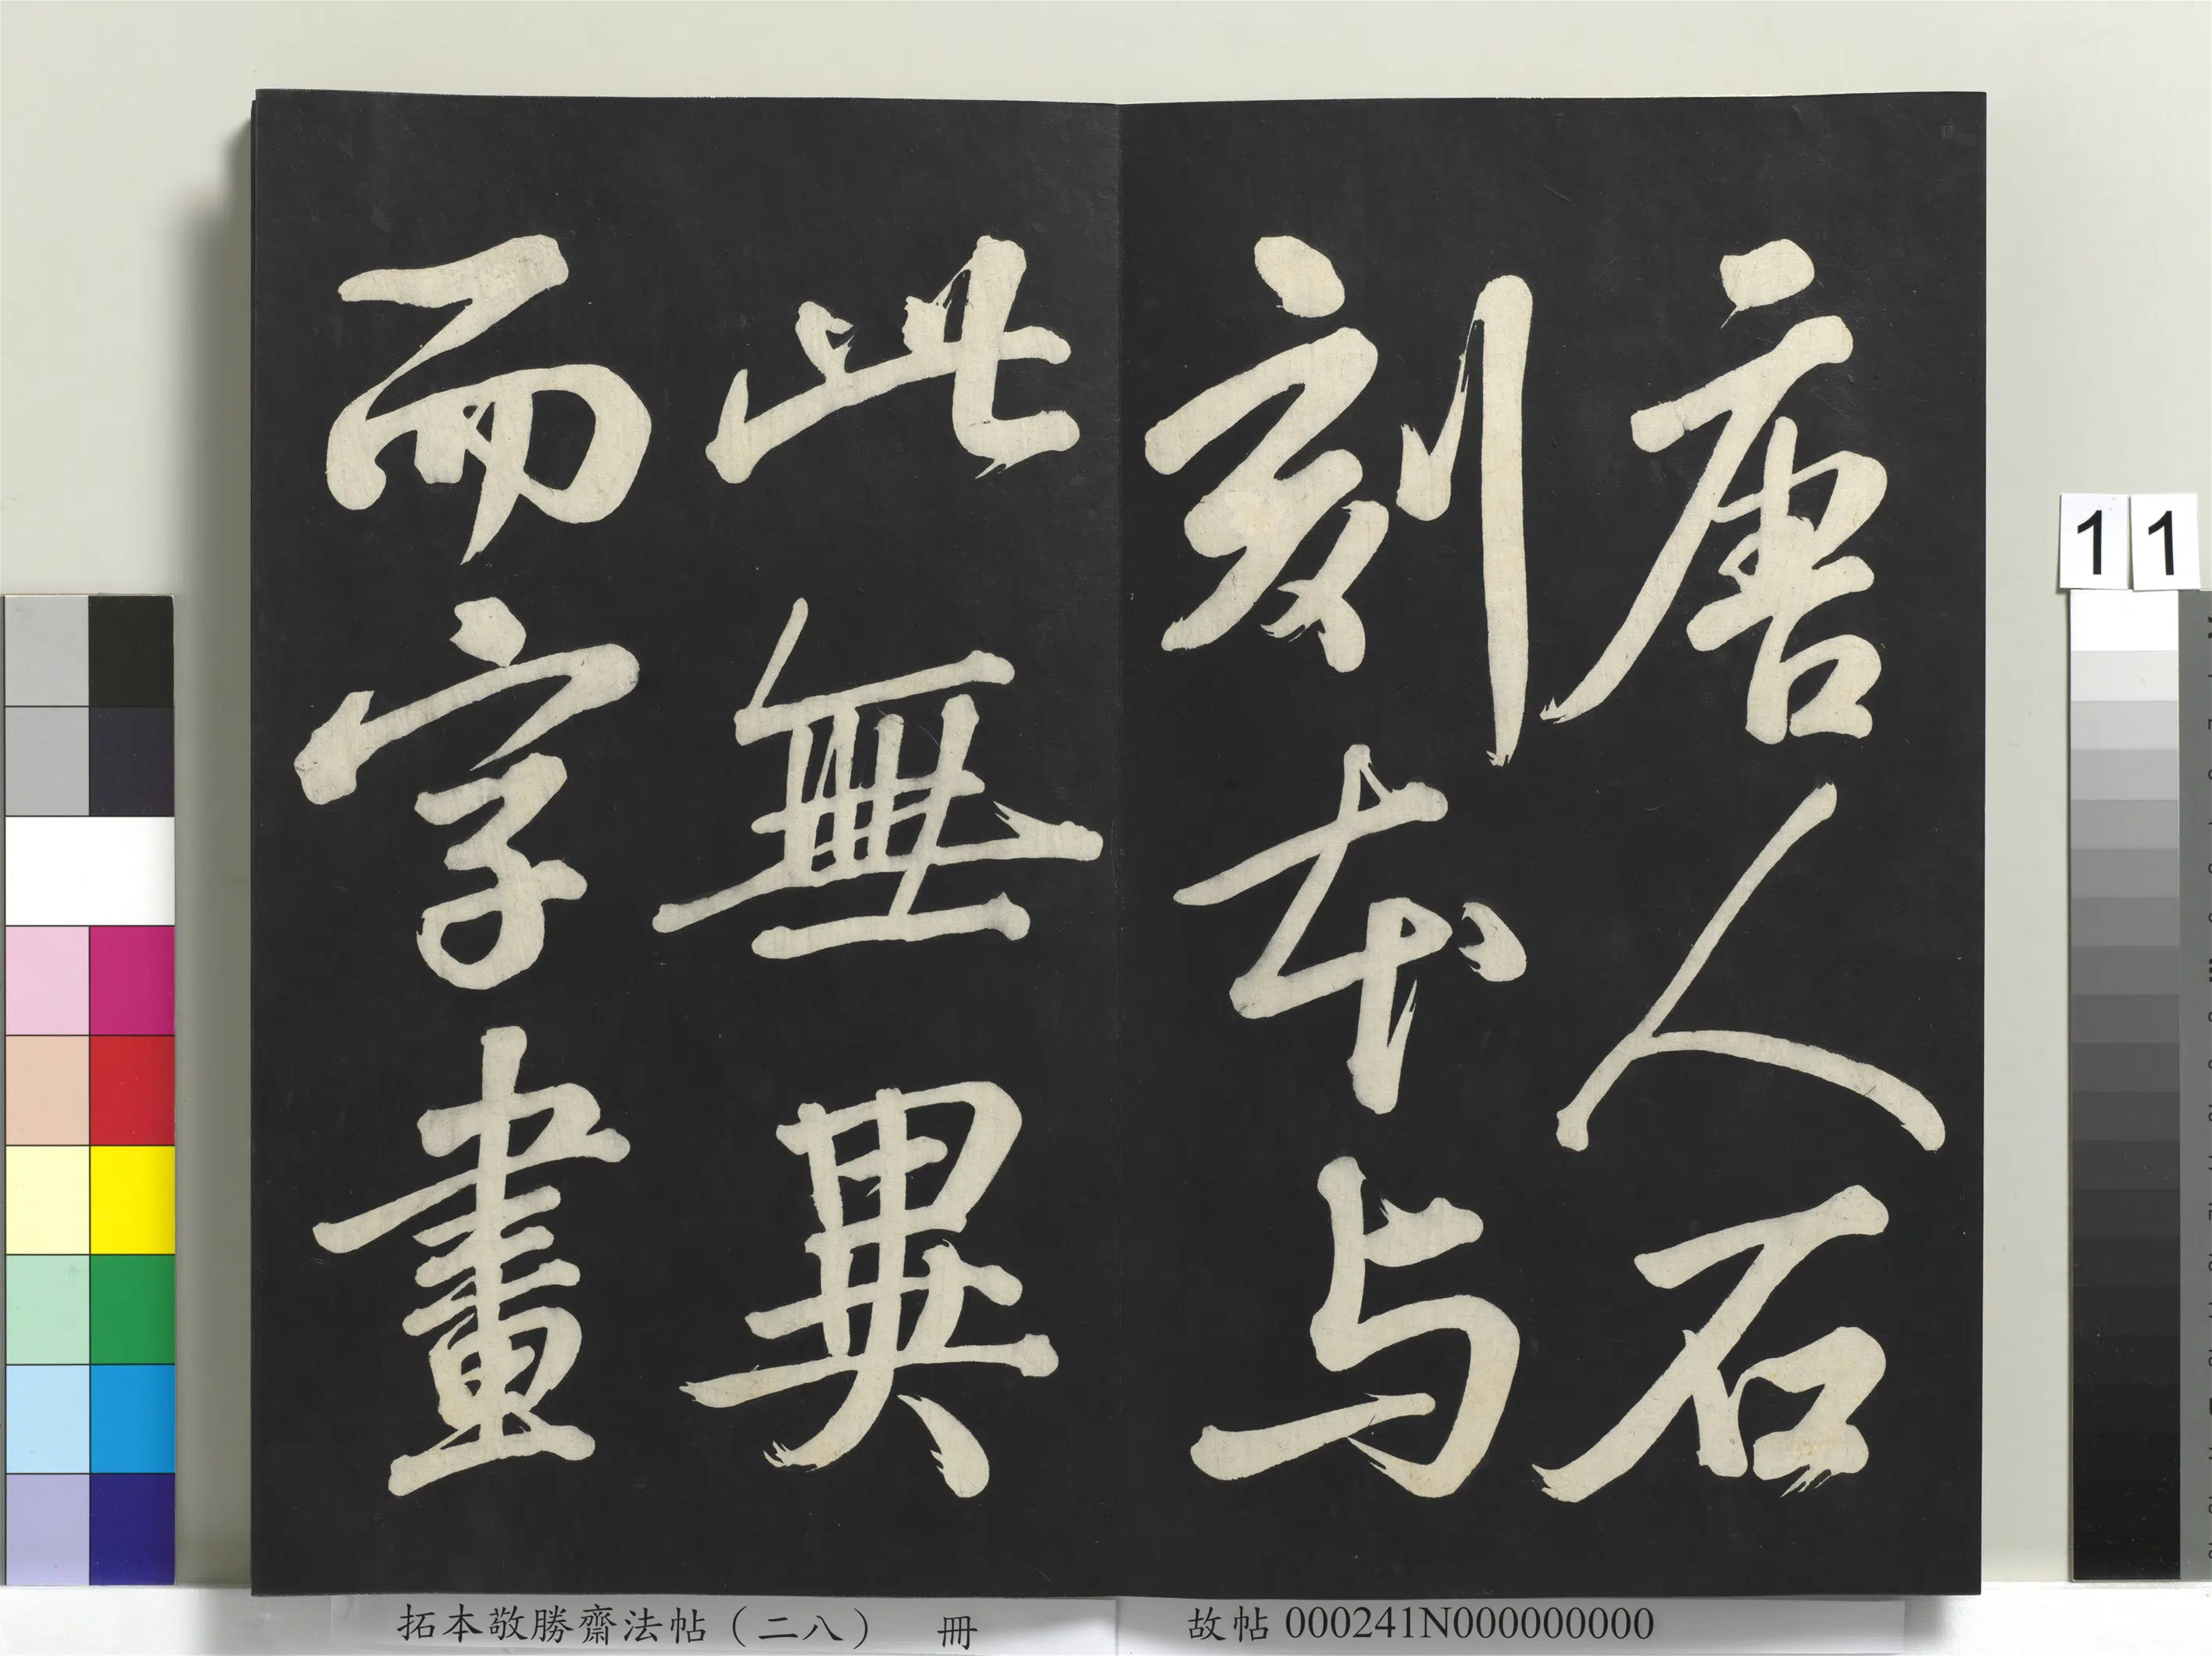 唐人石
刻本与
此無異
而字畫
11
拓本敬勝齋法帖（二八） 冊
故帖 000241N000000000